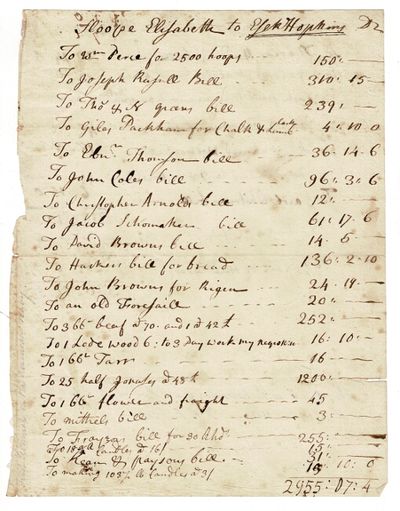 Sloope Elisabeth to Esek Hopkins Dr
To Wm Deree for 2500 hoops 150:
To Joseph Rusell Bill 310: 15
To Tho & N greens bill 239:
To Giles Packham for Chalk & 4: 10: 0
To Ebnr Thomson bill 36: 14: 6
To John Coles bill 96: 3: 6
To Christopher Arnolds bill 12:
To Jacob Schomakers bill 61: 17: 6
To David Browns bill 14: 5
To Harkers bill for bread 136: 2: 10
To John Browns for Rigen 24: 19:
To an old Foresaill 20:
To 3 bb beaf a 70 and 1 a 42 252:
To 1 Lode wood 6: to 3 Day work my negro 16: 10:
To 1 bb Tarr 16
To 25 half a 48 1200:
To 1 bb flower and frieght 45
To mittrels bill 3:
To bill for 30 255:
To 18 lb Candles a 16/ 15
To & paysons bill 31:
To making 103 lb Candles a 3/ 15: 10: 0
2955: 07: 4